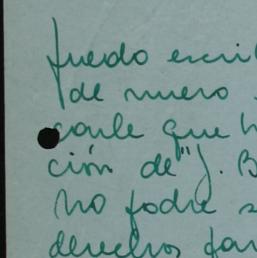 puedo escri
de nuevo
que h
ción de "J. B
No podré s
derechos par